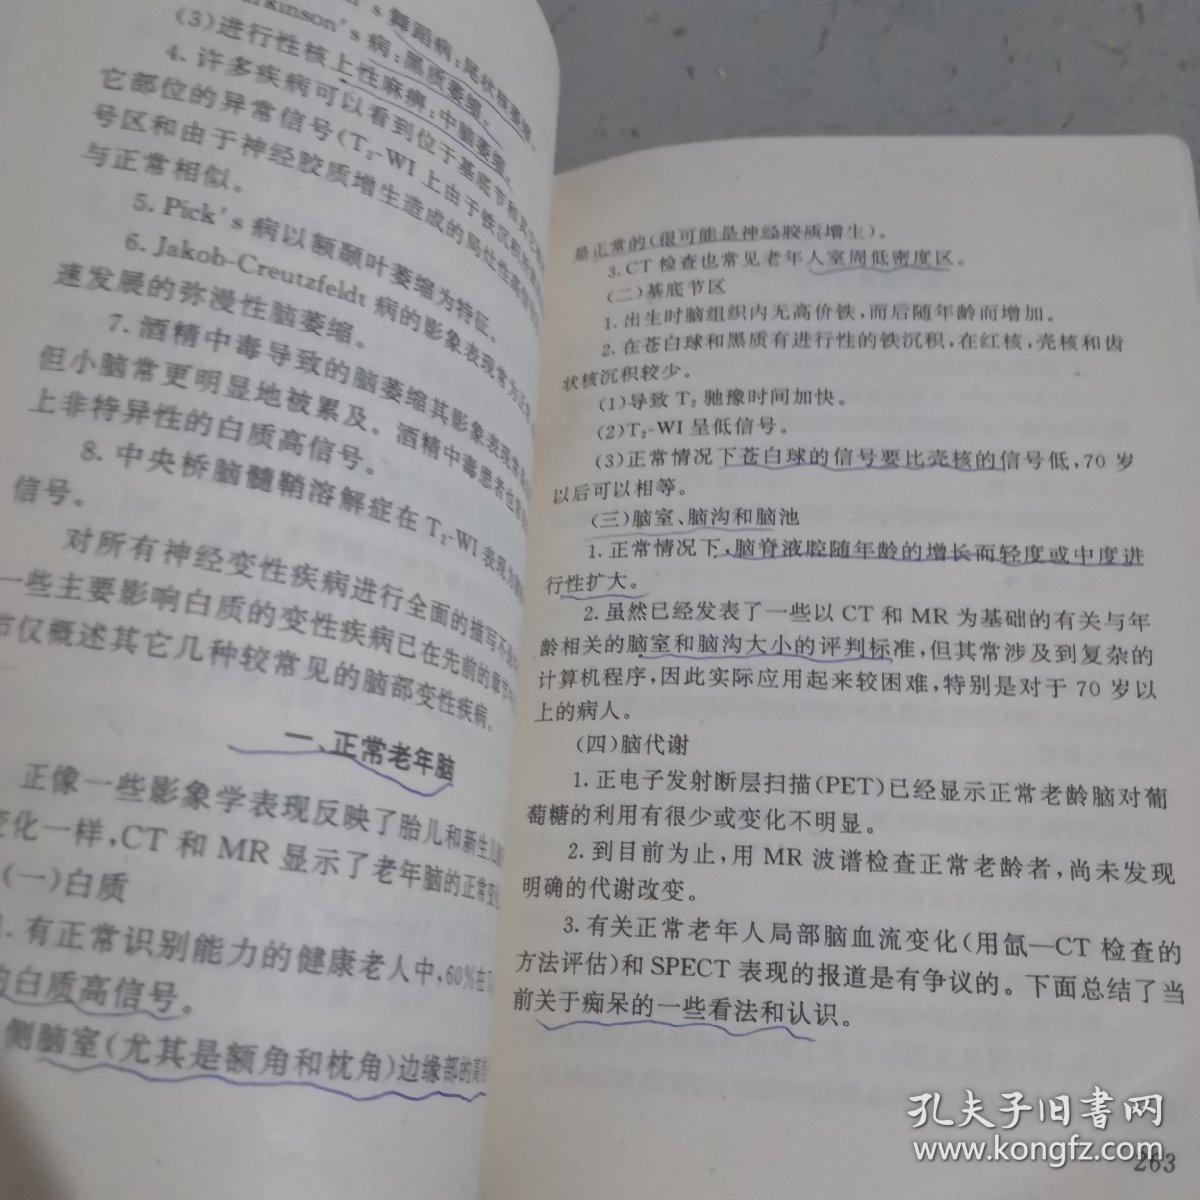 's 舞蹈病:尾状核萎缩
rkinson's 病:黑质萎缩。
(3)进行性核上性麻痹:中脑萎缩。
4. 许多疾病可以看到位于基底节和其
它部位的异常信号(T₂-WI 上由于铁沉积
号区和由于神经胶质增生造成的局灶性高信号
与正常相似。
5. Pick's 病以额颞叶萎缩为特征。
6. Jakob-Creutzfeldt 病的影象表现常为正常
速发展的弥漫性脑萎缩。
7. 酒精中毒导致的脑萎缩其影象表现常
但小脑常更明显地被累及。酒精中毒患者也常
上非特异性的白质高信号。
8. 中央桥脑髓鞘溶解症在 T₂-WI 表现为
信号。
对所有神经变性疾病进行全面的描写不是
一些主要影响白质的变性疾病已在先前的章节中
节仅概述其它几种较常见的脑部变性疾病。
一、正常老年脑
正像一些影象学表现反映了胎儿和新生儿
变化一样,CT 和 MR 显示了老年脑的正常变
(一)白质
1. 有正常识别能力的健康老人中,60%在
的白质高信号。
侧脑室(尤其是额角和枕角)边缘部的高
是正常的(很可能是神经胶质增生)。
3. CT 检查也常见老年人室周低密度区。
(二)基底节区
1. 出生时脑组织内无高价铁,而后随年龄而增加。
2. 在苍白球和黑质有进行性的铁沉积,在红核,壳核和齿
状核沉积较少。
(1)导致 T₂ 驰豫时间加快。
(2)T₂-WI 呈低信号。
(3)正常情况下苍白球的信号要比壳核的信号低,70 岁
以后可以相等。
(三)脑室、脑沟和脑池
1. 正常情况下,脑脊液腔随年龄的增长而轻度或中度进
行性扩大。
2. 虽然已经发表了一些以 CT 和 MR 为基础的有关与年
龄相关的脑室和脑沟大小的评判标准,但其常涉及到复杂的
计算机程序,因此实际应用起来较困难,特别是对于 70 岁以
上的病人。
(四)脑代谢
1. 正电子发射断层扫描(PET)已经显示正常老龄脑对葡
萄糖的利用有很少或变化不明显。
2. 到目前为止,用 MR 波谱检查正常老龄者,尚未发现
明确的代谢改变。
3. 有关正常老年人局部脑血流变化(用氙—CT 检查的
方法评估)和 SPECT 表现的报道是有争议的。下面总结了当
前关于痴呆的一些看法和认识。
263
孔夫子旧书网
www.kongfz.com